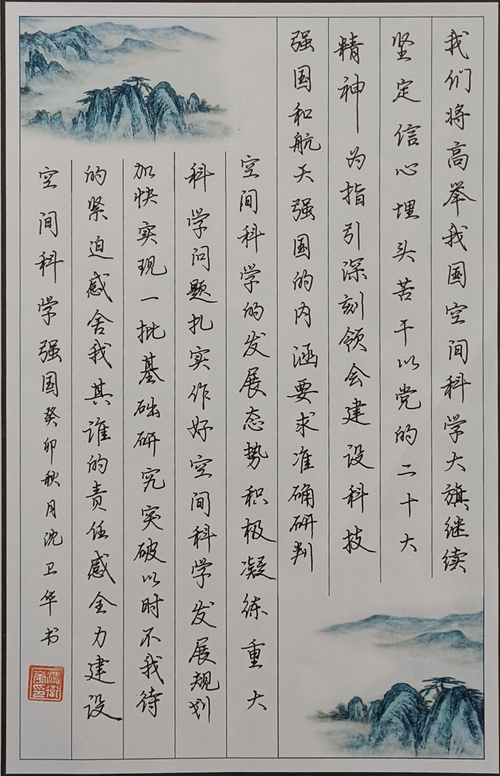 我们将高举我国空间科学大旗继续
坚定信心埋头苦干以党的二十大
精神为指引深刻领会建设科技
强国和航天强国的内涵要求准确研判
空间科学的发展态势积极凝练重大
科学问题扎实作好空间科学发展规划
加快实现一批基础研究突破以时不我待
的紧迫感舍我其谁的责任感全力建设
空间科学强国癸卯秋月沈卫华书